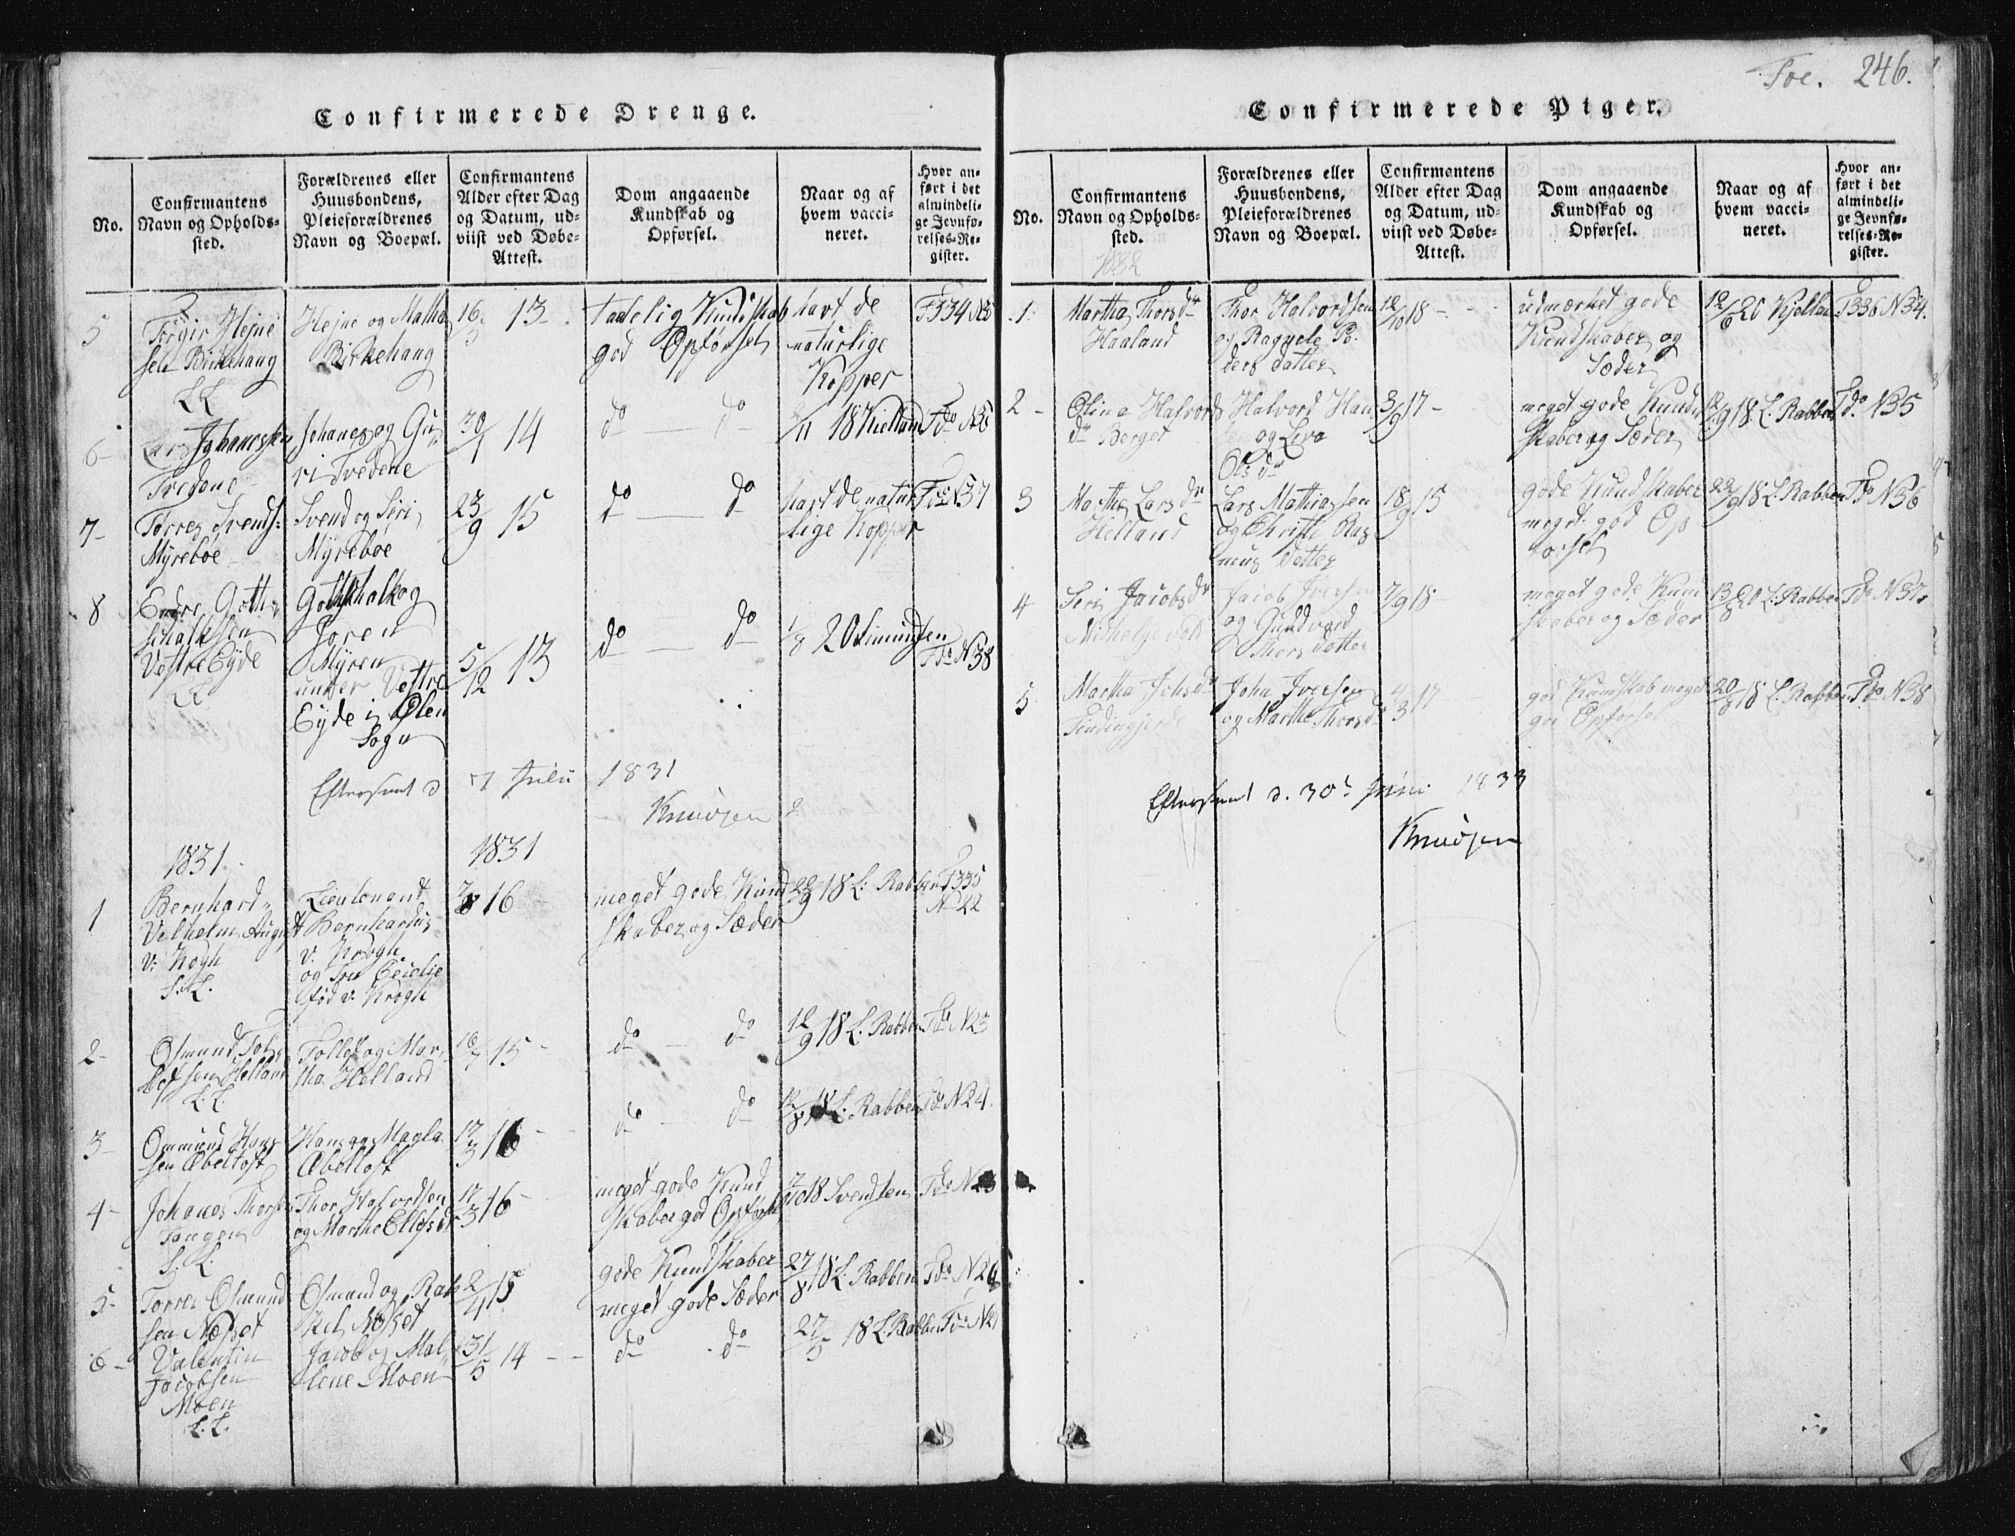 Confirmerede Drenge.
No.
Confirmantens
Navn og Opholds-
sted.
Forældrenes eller
Huusbondens,
Pleieforældrenes
Navn og Boepæl.
Confirmantens
Alder efter Dag
og Datum, ud-
viist ved Døbe-
Attest.
Dom angaaende
Kundskab og
Opførsel.
Naar og af
hvem vacci-
neret.
Hvor an-
ført i det
almindeli-
ge Jevnfø-
relses-Re-
gister.
5
Hejne
sen Birkehaug
Hejne og Martha
Birkehaug
16/3 13
taalelig Kundskab
god Opførsel
havt de
naturlige
Kopper
F 334 N 35
6
Lars Johanessen
Tvedene
Johanes og Gu
ri Tvedene
30/1 14
do do
11 18 Kielland
F do N 36
7
Torres Svends:
Myreboe
Svend og Siri
Myreboe
23/9 15
do do
havt de natur
lige Kopper
F do N 37
8
Endre Goth
schalksen
Vestre Eyde
Gothschalk og
Joren
Myren
under Vestre
Eyde i Ølen
Sogn
5/12 13
do do
1/9 20 Simunsen
F do N 38
Efterseet d 7 Julii 1831
Knudsen
1831
1831
1
Bernhard
Vilhelm August
v: Krogh
Lieutenant
Bernhardus
v: Krogh
og Fru Cecilie
fød v: Krogh
16
meget gode Kund
skaber og Sæder
22/9 18 L: Rabben
F 335
N 22
2
Osmund Tol
lefsen Helland
L. L.
Tollef og Mar
tha Helland
15
do do
12/9 18 L. Rabben
F do N 23
3
Ommund Hans
sen Æbeltoft
Hans og Magla
Æbeltoft
17/3 16
do do
18 L: Rabben
F do N 24.
4
Johanes Thorsen
Tangen
L. L.
Thor Halvordsen
og Marthe
17/3 16
meget gode Kund
skaber god Opførsel
18 Svendsen
F do N 25
5
Torres Osmund
sen Næsset
Osmund og Ra
kel Næsset
2/4 15
gode Kundskaber
meget gode Sæder
27/8 18 L. Rabben
F do N 26
6
Valentin
Jacobsen
Moen
L. L.
Jacob og Mal
lene Moen
31/5 14
do do
27/5 18 L. Rabben
F do N
Foe. 246.
Confirmerede Piger.
No.
Confirmantens
Navn og Opholds-
sted.
Forældrenes eller
Huusbondens,
Pleieforældrenes
Navn og Boepæl.
Confirmantens
Alder efter Dag
og Datum, ud-
viist ved Døbe-
Attest.
Dom angaaende
Kundskab og
Opførsel.
Naar og af
hvem vacci-
neret.
Hvor an-
ført i det
almindeli-
ge Jevnfø-
relses-Re-
gister.
1832
1.
Martha Thorsdr
Haaland
Thor Halvordsen
og Ragnele Pe
ders datter
12/10 18
udmærket gode
Kundskaber og
Sæder
12/6 20
F 336 N 34.
2
Olina Halvords
dr Berget
Halvord Han
sen og Leva
Ols dr
3/9 17
meget gode Kund
skaber og Sæder
12/9 18 L. Rabben
F do N 35
3
Marthe Lars dr
Helland
Lars Mathiassen
og Christi Ras
mus Datter
18/9 15
gode Kundskaber
meget god Op
førsel
22/9 18 L. Rabben
F do N 36
4
Siri Jacobs dr
Jacob Iversen
og Gundvord
Thors Datter
7/9 18
meget gode Kund
skaber og Sæder
13/8 20 L. Rabben
F do N 37.
5
Martha Johs dr
John Iversen
og Marthe Thorsd
4/3 17
god Kundskab meget
god Opførsel
20/8 18 L. Rabben
F do N 38
Efterseet d. 30t Juni 1833
Knudsen